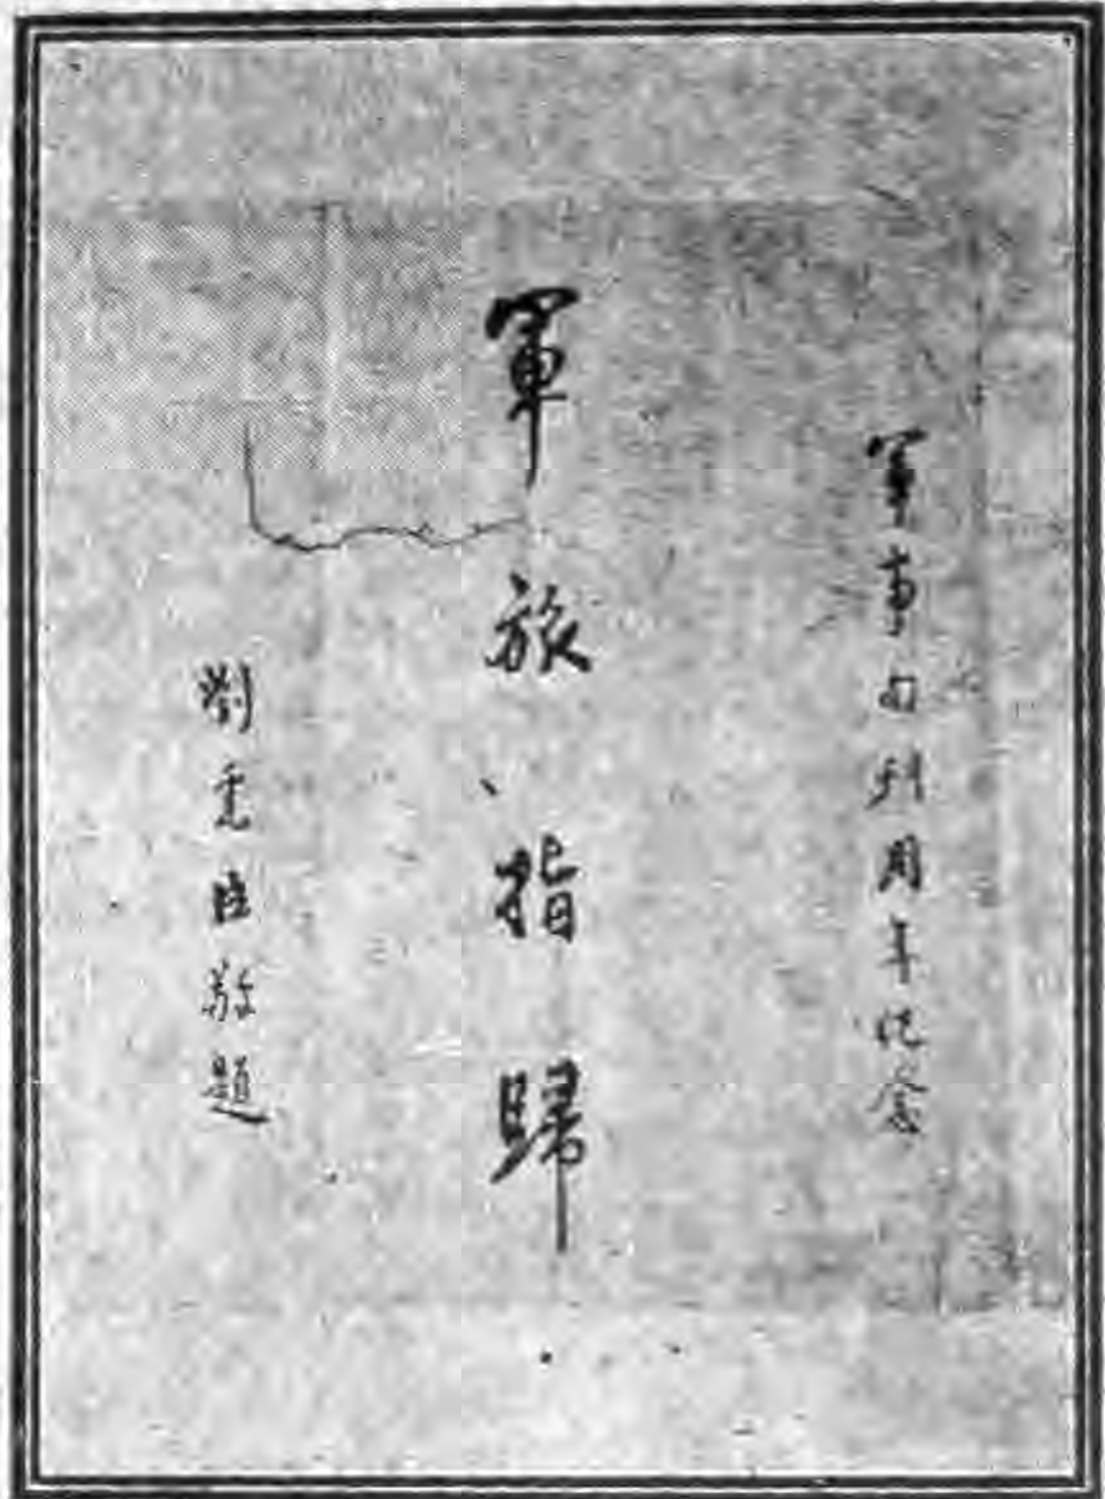 軍事旬刊周年紀念
軍旅指歸
劉秉臣敬題